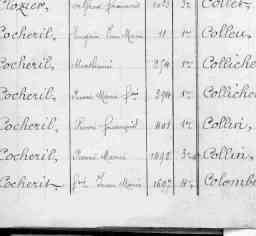 Clozier, 3e Collet,
Cocheril, Eugène Jean Marie 11 1er Colleu,
Cocheril, Mathurin 254 1er Colliche
Cocheril, Pierre Marie 394 1er Colliche
Cocheril, Pierre François 1er Collin,
Cocheril, Pierre Marie 1092 3e Collin,
Cocheril Jean Marie Colomb